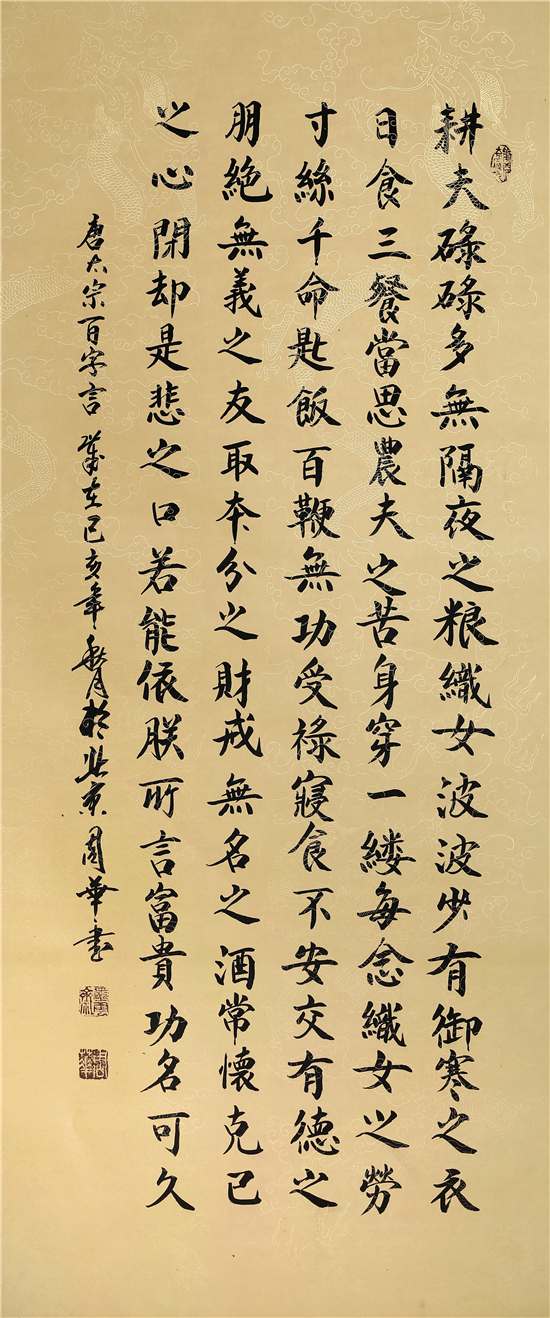 耕夫碌碌多無隔夜之粮織女波波少有御寒之衣
日食三餐當思農夫之苦身穿一縷每念織女之勞
寸絲千命匙飯百鞭無功受禄寢食不安交有德之
朋絶無義之友取本分之財戒無名之酒常懷克己
之心閉却是悲之口若能依朕所言富貴功名可久
唐太宗百字言 歲在己亥年 於北京周華書